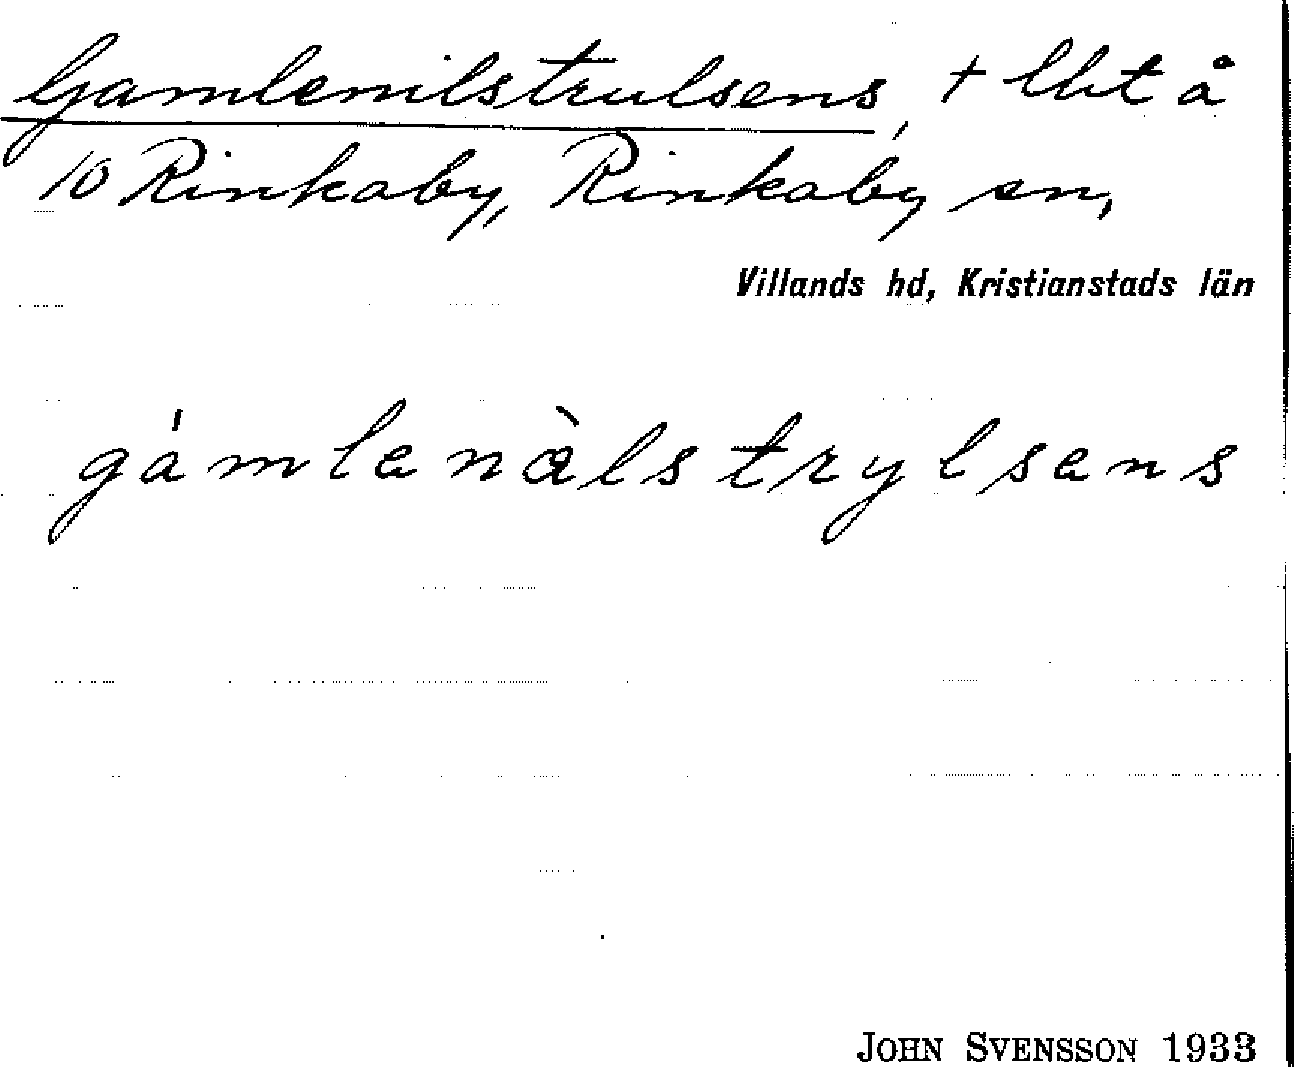 Gamlenilstrulsens, + lht å
10 Rinkaby, Rinkaby sn,
Villands hd, Kristianstads län
gámlenàlstrylsens
JOHN SVENSSON 1933